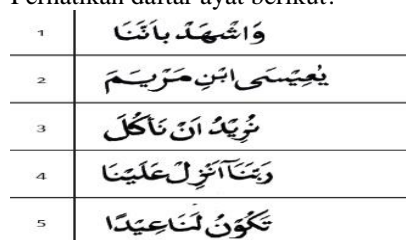 Perhatikan daftar ayat berikut!
1 وَاشْهَدْ بِاَنَّنَا
2 يٰعِيْسَى ابْنَ مَرْيَمَ
3 نُرِيْدُ اَنْ نَأْكُلَ
4 رَبَّنَآ اَنْزِلْ عَلَيْنَا
5 تَكُوْنُ لَنَا عِيْدًا